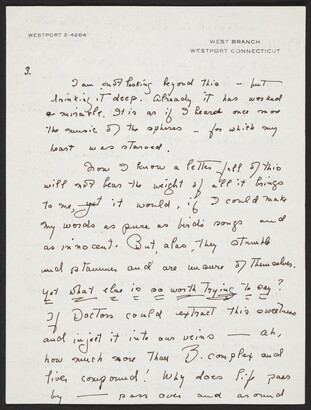 WESTPORT 2-4264
WEST BRANCH
WESTPORT CONNECTICUT
3.
I am not looking beyond this — but
drinking it deep. Already it has worked
a miracle. It is as if I heard once more
the music of the spheres — for which my
heart was starved.
Now I know a letter full of this
will not bear the weight of all it brings
to me, yet it would, if I could make
my words as pure as birds songs and
as innocent. But, alas, they stumble
and stammer and are unsure of themselves.
Yet what else is so worth trying to say?
If Doctors could extract this sweetness
and inject it into our veins — ah,
how much more than B. complex and
liver compound! Why does life pass
by — pass over and around